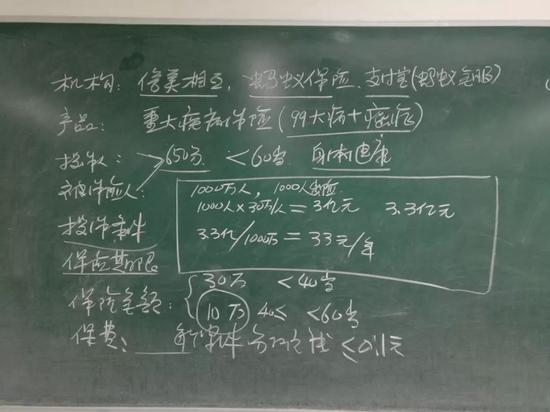 机构：信美相互，蚂蚁保险、支付宝(蚂蚁金服)
产品：重大疾病保险(99大病+癌症)
投保人： 650分 <60岁 身体健康
被保险人：
1000万人，1000人出险
投保条件
1000人×30万/人=3亿元 3.3亿元
3.3亿/1000万=33元/年
保险期限
保险金额： 30万 <40岁
10万 40< <60岁
保费： 分摊 ≤0.1元